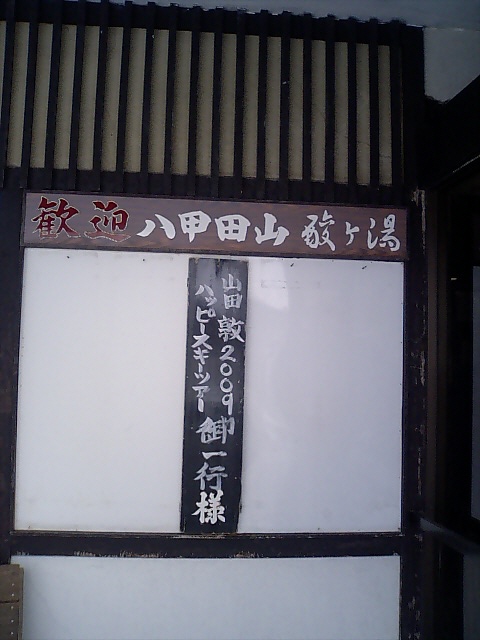 歓迎 八甲田山 酸ヶ湯
山田 敦2009
ハッピースキーツアー
御一行様